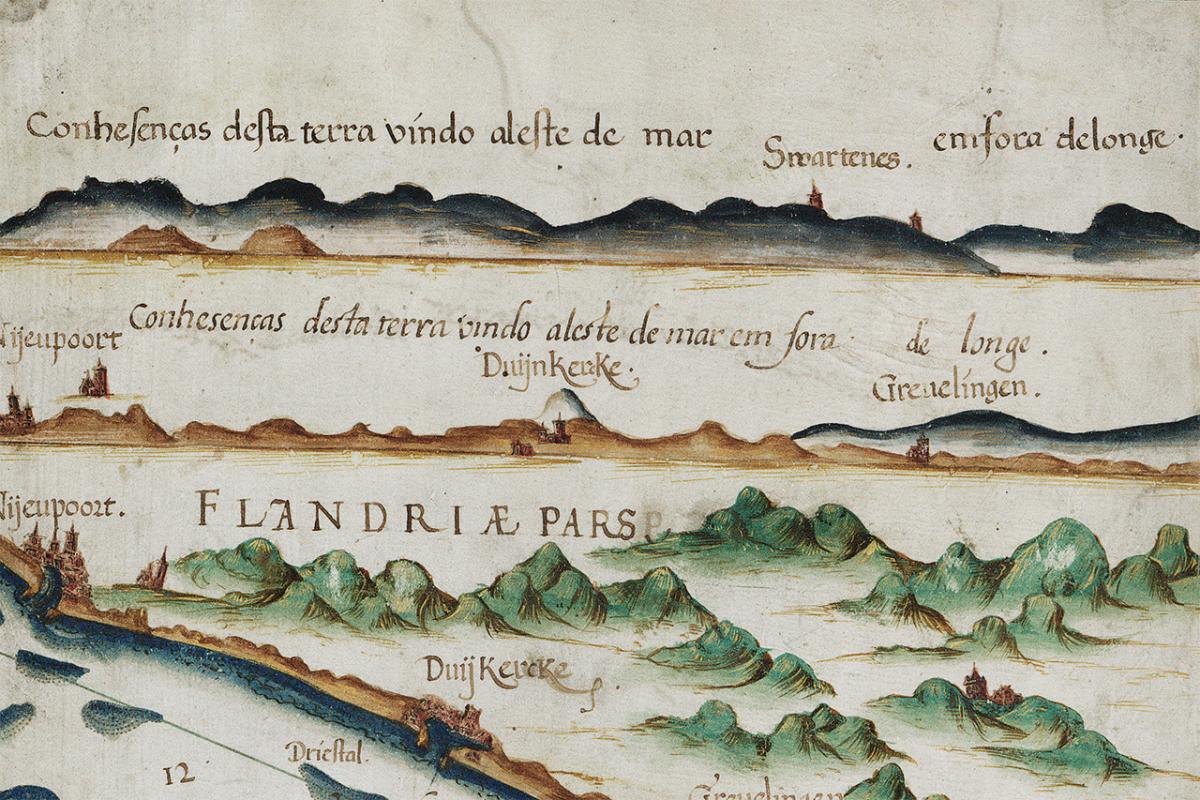 Conhesenças desta terra vindo aleste de mar emfora delonge.
Swartenes.
Conhesenças desta terra vindo aleste de mar em fora de longe.
Nijeupoort
Duijnkercke.
Grevelingen.
Nijeupoort.
FLANDRIÆ PARS
Duijkercke
Driestal.
12
Grevelingen